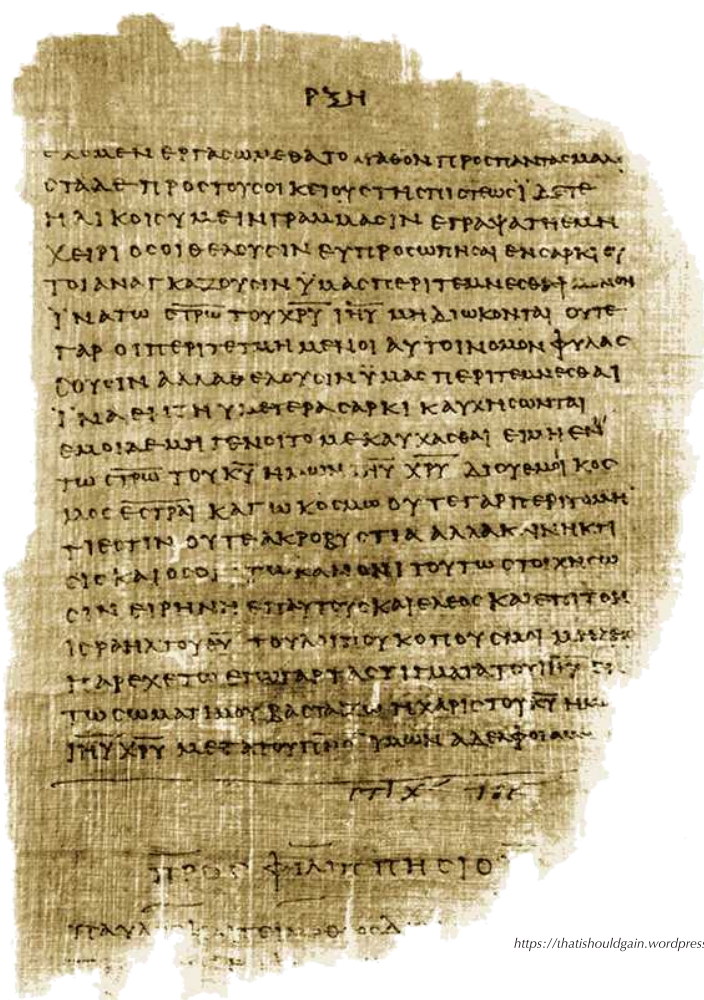 ΡΞΗ
ΕΧΟΜΕΝ ΕΡΓΑϹΩΜΕΘΑ ΤΟ ΑΓΑΘΟΝ ΠΡΟϹ ΠΑΝΤΑϹ ΜΑΛΙ
ϹΤΑ ΔΕ ΠΡΟϹ ΤΟΥϹ ΟΙΚΕΙΟΥϹ ΤΗϹ ΠΙϹΤΕΩϹ ΪΔΕΤΕ
ΗΛΙΚΟΙϹ ΥΜΕΙΝ ΓΡΑΜΜΑϹΙΝ ΕΓΡΑΨΑ ΤΗ ΕΜΗ
ΧΕΙΡΙ ΟϹΟΙ ΘΕΛΟΥϹΙΝ ΕΥΠΡΟϹΩΠΗϹΑΙ ΕΝ ϹΑΡΚΙ ΟΥ
ΤΟΙ ΑΝΑΓΚΑΖΟΥϹΙΝ ΫΜΑϹ ΠΕΡΙΤΕΜΝΕϹΘΑΙ ΜΟΝΟΝ
ΪΝΑ ΤΩ Ϲ̅Τ̅Ρ̅Ω̅ ΤΟΥ Χ̅Ρ̅Υ̅ Ι̅Η̅Υ̅ ΜΗ ΔΙΩΚΟΝΤΑΙ ΟΥΤΕ
ΓΑΡ ΟΙ ΠΕΡΙΤΕΤΜΗΜΕΝΟΙ ΑΥΤΟΙ ΝΟΜΟΝ ΦΥΛΑϹ
ϹΟΥϹΙΝ ΑΛΛΑ ΘΕΛΟΥϹΙΝ ΫΜΑϹ ΠΕΡΙΤΕΜΝΕϹΘΑΙ
ΪΝΑ ΕΝ ΤΗ ΥΜΕΤΕΡΑ ϹΑΡΚΙ ΚΑΥΧΗϹΩΝΤΑΙ
ΕΜΟΙ ΔΕ ΜΗ ΓΕΝΟΙΤΟ ΜΕ ΚΑΥΧΑϹΘΑΙ ΕΙ ΜΗ ΕΝ
ΤΩ Ϲ̅Τ̅Ρ̅Ω̅ ΤΟΥ Κ̅Υ̅ ΗΜΩΝ Ι̅Η̅Υ̅ Χ̅Ρ̅Υ̅ ΔΙ ΟΥ ΕΜΟΙ ΚΟϹ
ΜΟϹ Ε̅Ϲ̅Τ̅Ρ̅Α̅Ι̅ ΚΑΓΩ ΚΟϹΜΩ ΟΥΤΕ ΓΑΡ ΠΕΡΙΤΟΜΗ
ΤΙ ΕϹΤΙΝ ΟΥΤΕ ΑΚΡΟΒΥϹΤΙΑ ΑΛΛΑ ΚΑΙΝΗ ΚΤΙ
ϹΙϹ ΚΑΙ ΟϹΟΙ ΤΩ ΚΑΝΟΝΙ ΤΟΥΤΩ ϹΤΟΙΧΗϹΩ
ϹΙΝ ΕΙΡΗΝΗ ΕΠ ΑΥΤΟΥϹ ΚΑΙ ΕΛΕΟϹ ΚΑΙ ΕΠΙ ΤΟΝ
ΙϹΡΑΗΛ ΤΟΥ Θ̅Υ̅ ΤΟΥ ΛΟΙΠΟΥ ΚΟΠΟΥϹ ΜΟΙ ΜΗΔΕΙϹ
ΠΑΡΕΧΕΤΩ ΕΓΩ ΓΑΡ ΤΑ ϹΤΙΓΜΑΤΑ ΤΟΥ Ι̅Η̅Υ̅ ΕΝ
ΤΩ ϹΩΜΑΤΙ ΜΟΥ ΒΑϹΤΑΖΩ Η ΧΑΡΙϹ ΤΟΥ Κ̅Υ̅ ΗΜΩ
Ι̅Η̅Υ̅ Χ̅Ρ̅Υ̅ ΜΕΤΑ ΤΟΥ Π̅Ν̅Ϲ̅ ΥΜΩΝ ΑΔΕΛΦΟΙ ΑΜ
ϹΤΙΧ
ΠΡΟϹ ΦΙΛΙΠΠΗϹΙΟΥϹ
ΠΑΥΛΟϹ ΚΑΙ ΤΕΙΜΟΘΕΟϹ Δ
https://thatishouldgain.wordpress